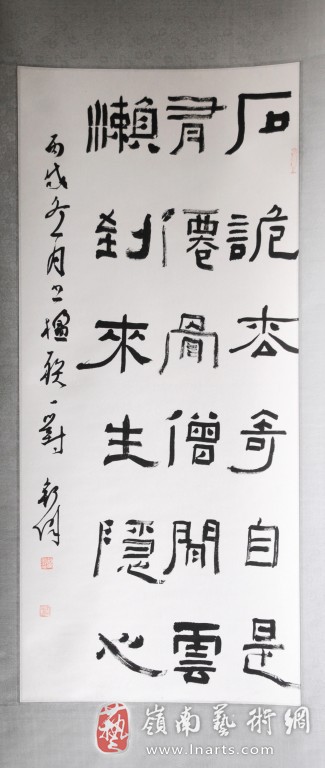 石詭枩奇自是
有僊骨僧閒雲
懶到來生隱心
丙戌冬月上楹聯一對
藝
嶺南藝術網
www.lnarts.com